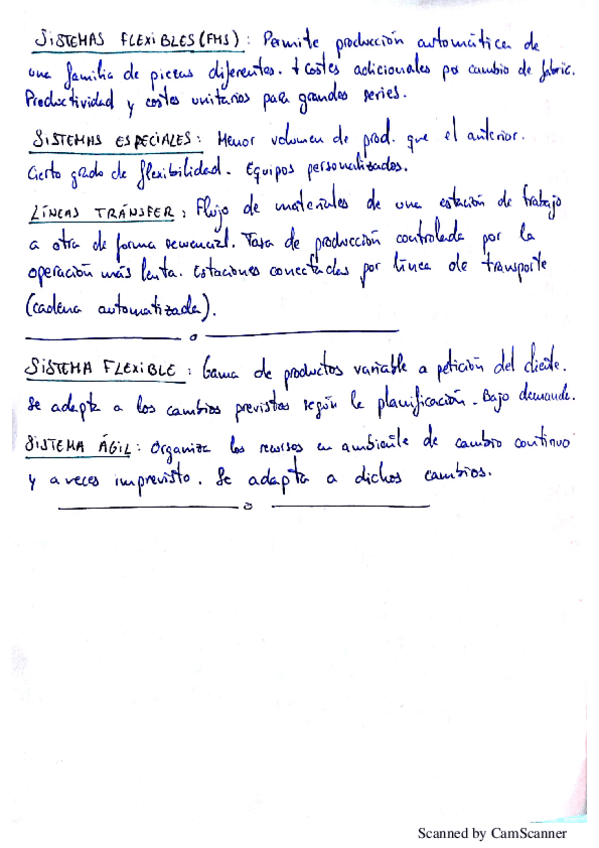 SISTEMAS FLEXIBLES (FMS) : Permite producción automática de
una familia de piezas diferentes. ↓ Costes adicionales por cambio de fabric.
Productividad y costes unitarios para grandes series.
SISTEMAS ESPECIALES : Menor volumen de prod. que el anterior.
Cierto grado de flexibilidad. Equipos personalizados.
LÍNEAS TRÁNSFER : Flujo de materiales de una estación de trabajo
a otra de forma secuencial. Tasa de producción controlada por la
operación más lenta. Estaciones conectadas por línea de transporte
(cadena automatizada).
SISTEMA FLEXIBLE : Gama de productos variable a petición del cliente.
Se adapta a los cambios previstos según la planificación. Bajo demanda.
SISTEMA ÁGIL : Organiza los recursos en ambiente de cambio continuo
y a veces imprevisto. Se adapta a dichos cambios.
Scanned by CamScanner